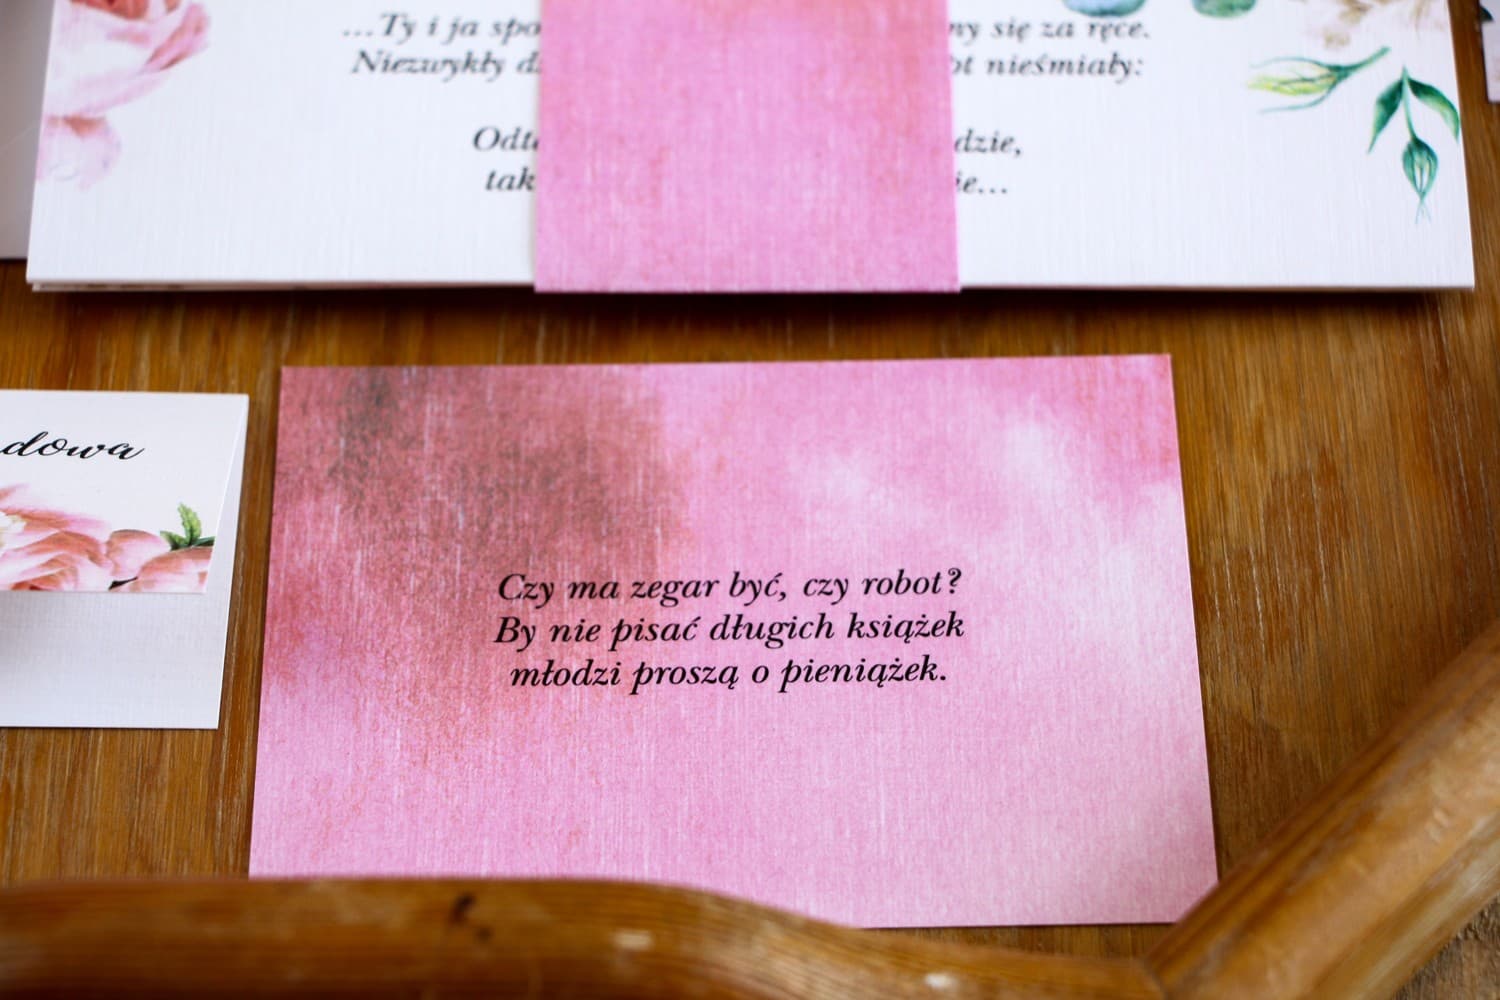 ...Ty i ja się za ręce.
Niezwykły nieśmiały:
tak
Czy ma zegar być, czy robot?
By nie pisać długich książek
młodzi proszą o pieniążek.